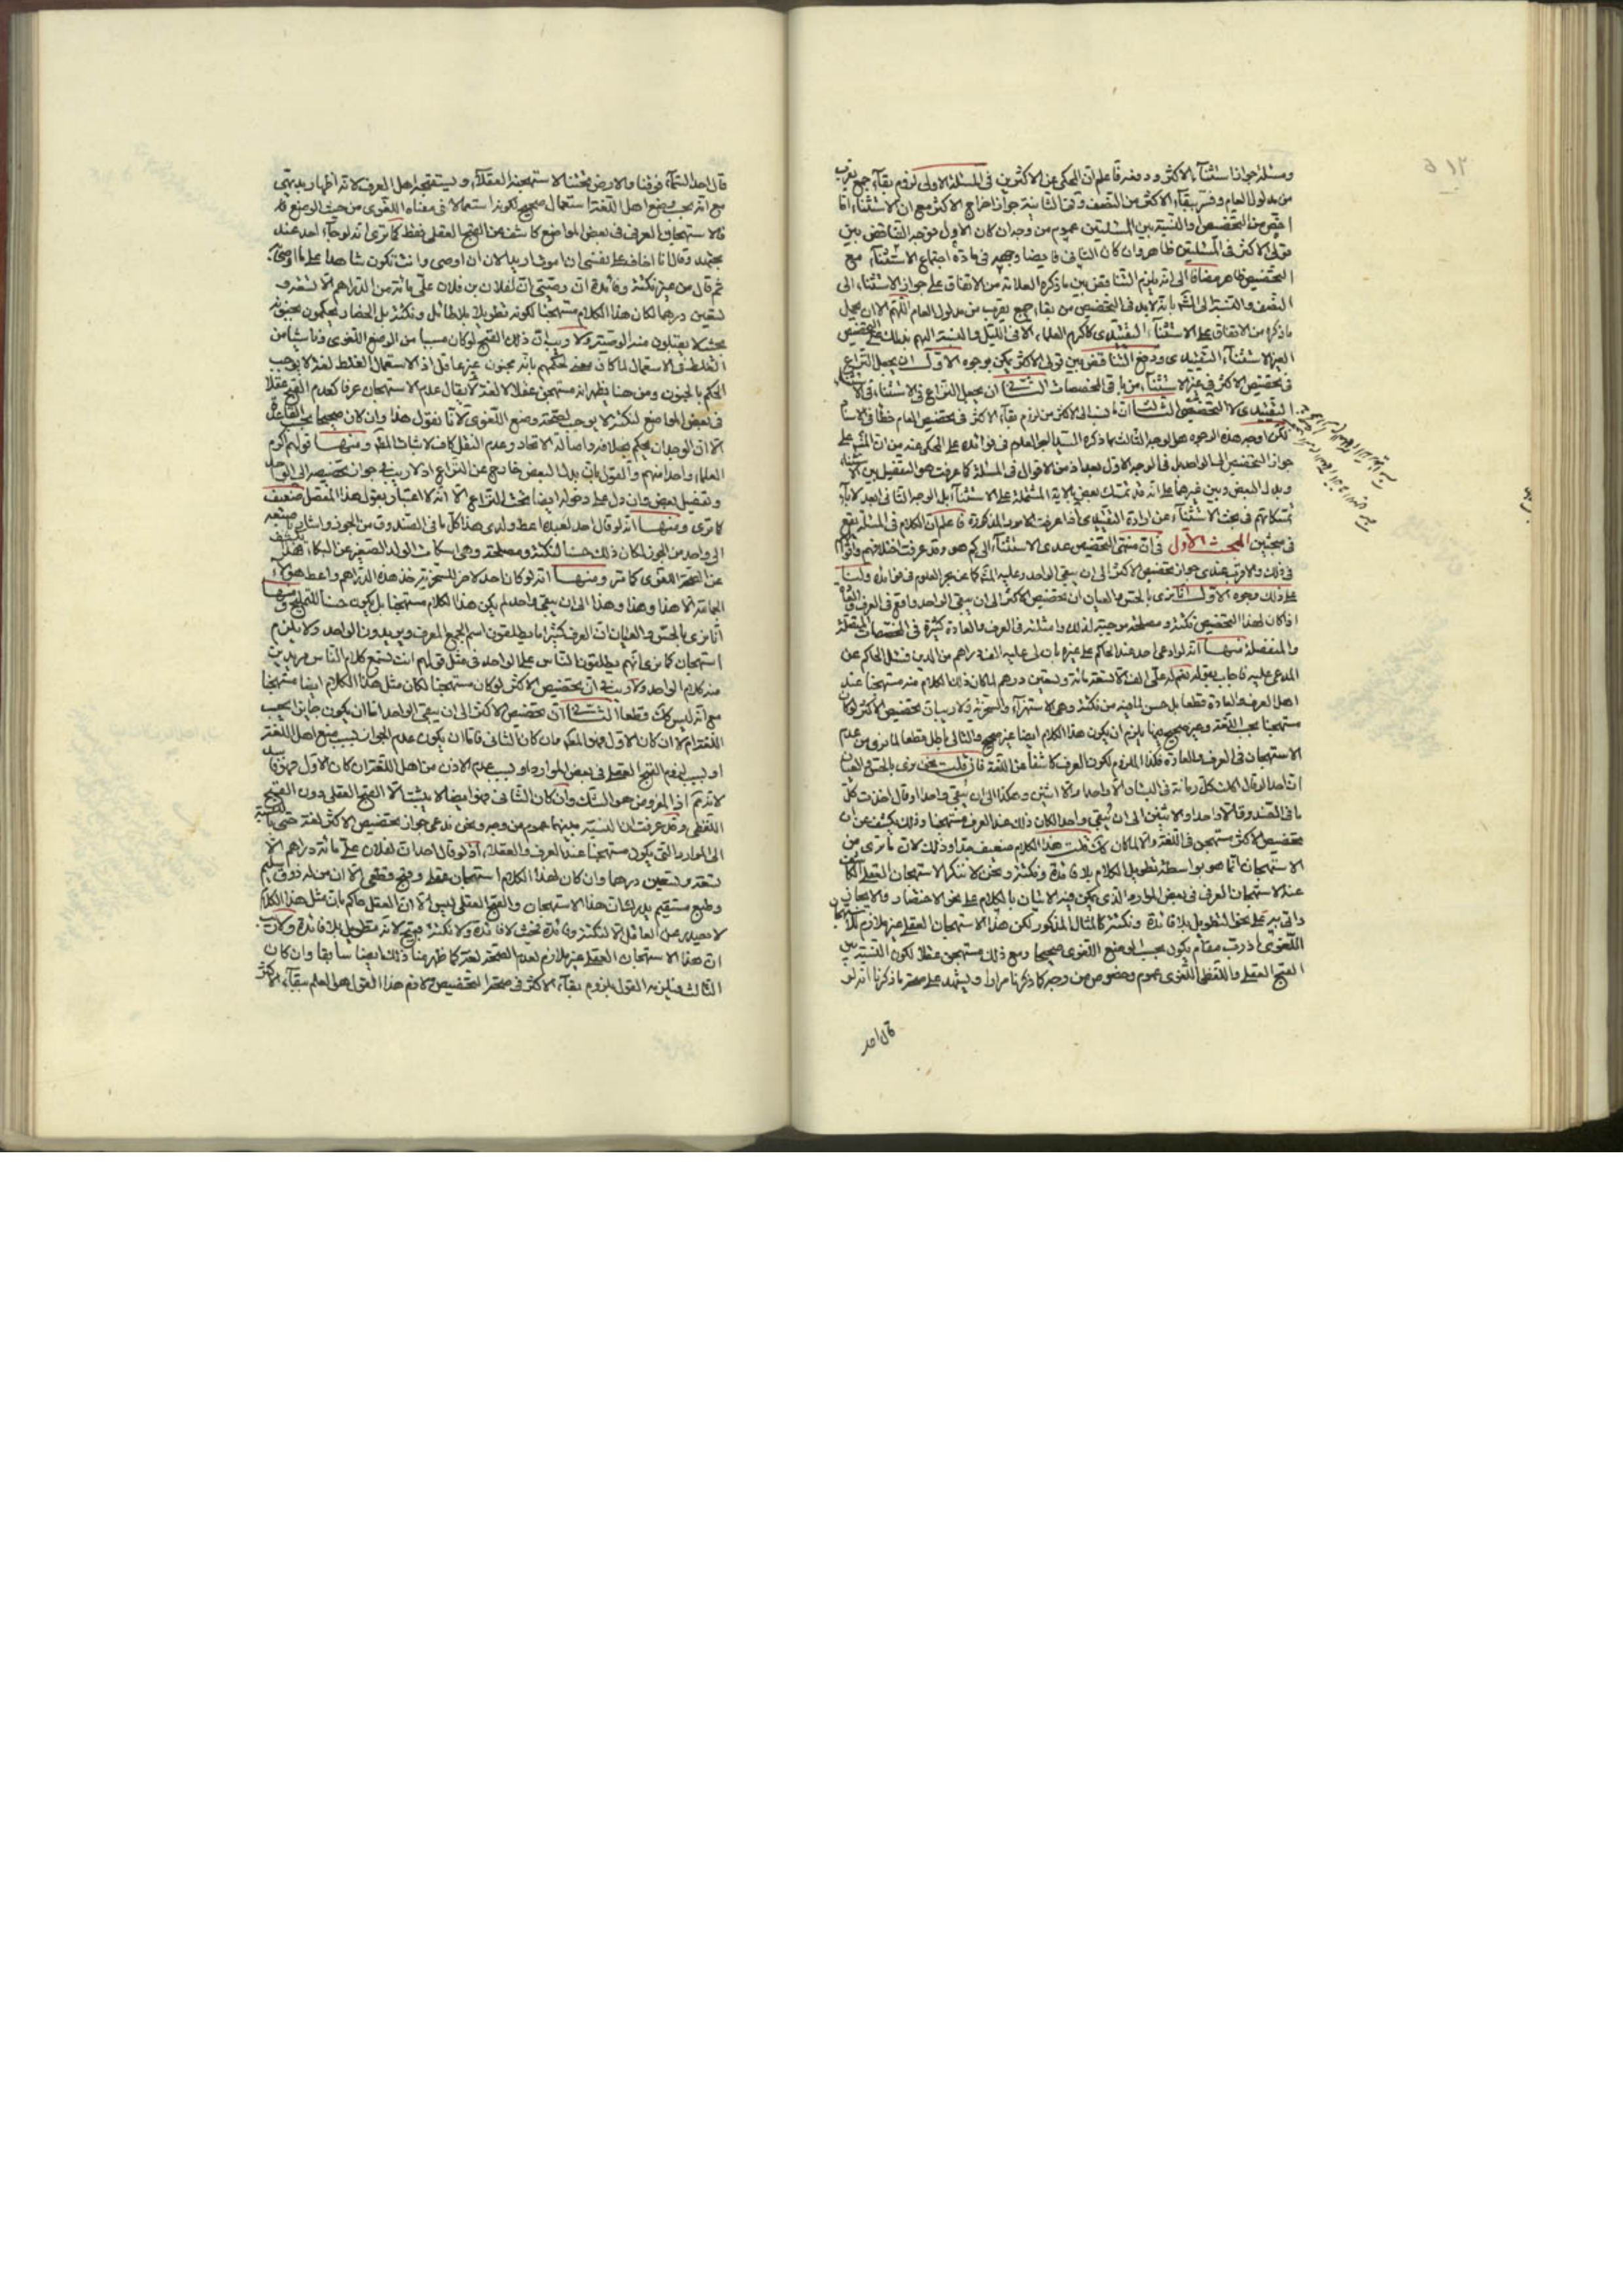 ومسئلة جواز استثناء الاكثر ودفعه فاعلم ان المحكي عن الاكثرين في المسئلة الاولى لزوم بقاء جمع يقرب
من مدلول العام وفسر ببقاء الاكثر من النصف وفي الثانية جواز اخراج الاكثر مع ان الاستثناء اما
اخص من التخصيص او النسبة بين المسئلتين عموم من وجه ان كان الاول فوجه التناقض بين
قولي الاكثر في المسئلتين ظاهر وان كان الثاني فايضا وجهه في مادة اجتماع الاستثناء مع
التخصيص ظاهر مضافا الى انه يلزم التناقض بين ما ذكره العلامة من الاتفاق على جواز الاستثناء الى
بانه لابد في التخصيص من بقاء جمع يقرب من مدلول العام اللهم الا ان يحمل
ما ذكره من الاتفاق على الاستثناء التقييدي كاكرم العلماء الا في الليل
الغير الاستثناء التقييدي ودفع التناقض بين قولي الاكثر يمكن بوجوه الاول ان يجعل النزاع
في تخصيص الاكثر في غير الاستثناء من باقي المخصصات الثاني ان يجعل النزاع في الاستثناء في
التقييدي لا التخصيصي الثالث ان ما نسب الى الاكثر من لزوم بقاء الاكثر في تخصيص العام خطأ
لكن اوجه هذه الوجوه هو الوجه الثالث لما ذكره السيد بحر العلوم في فوائده على المحكي عنه من ان المشهور على
جواز التخصيص الى الواحد بل في الوجه الاول بعد اذ من الاقوال في المسئلة كما عرفت هو التفصيل بين الاستثناء
وبدل البعض وبين غيرهما على انه قد تمسك بعض بالاية المشتملة على الاستثناء بل الوجه الثاني ابعد لاباء
تمسكاتهم في بحث الاستثناء عن ارادة التقييدي اذا عرفت الامور المذكورة فاعلم ان الكلام في المسئلة يقع
في مبحثين المبحث الاول في ان منتهى التخصيص عدى الاستثناء الى كم هو وقد عرفت اختلافهم واقوالهم
في ذلك والاقرب عندي جواز تخصيص الاكثر الى ان يبقى الواحد وعليه المشهور كما عن بحر العلوم في فوائده ولنا
على ذلك وجوه الاول انا نرى بالحس والعيان ان تخصيص الاكثر الى ان يبقى الواحد واقع في العرف والعادة
اذا كان لهذا التخصيص نكتة ومصلحة موجبة لذلك وامثلته في العرف والعادة كثيرة في المخصصات المتصلة
والمنفصلة منها انه لو ادعى احد عند الحاكم على غيره بان لي عليه الف دراهم من الدين فسئل الحاكم عن
المدعى عليه فاجاب بقوله نعم له علي الف الا تسعمائة وتسعين درهم لما كان ذلك الكلام منه مستهجنا عند
اهل العرف والعادة قطعا بل حسن لما فيه من نكتة وهي الاستهزاء والسخرية ولا ريب ان تخصيص الاكثر لو كان
مستهجنا بحسب اللغة وغير صحيح فيها يلزم ان يكون هذا الكلام ايضا غير صحيح والتالي باطل قطعا لما نرى من عدم
الاستهجان في العرف والعادة فكذا الملزوم لكون العرف كاشفا عن اللغة فان قلت نحن نرى بالحس والعيان
ان احدا لو قال اكلت كل رمانة في البستان الا واحدا والا اثنين وهكذا الى ان يبقى واحدا وقال اخذت كل
ما في الصندوق الا واحدا والا اثنين الى ان يبقى واحد لكان ذلك عند العرف مستهجنا وذلك يكشف عن ان
تخصيص الاكثر مستهجن في اللغة والا لما كان كك قلت هذا الكلام ضعيف جدا وذلك لان ما ترى من
الاستهجان انما هو بواسطة تطويل الكلام بلا فائدة ونكتة ونحن لا ننكر الاستهجان العقلي
عند الاستهجان العرفي في بعض الموارد الذي يمكن فيه الاتيان بالكلام على نحو الاختصار والايجاز
واتى به على نحو التطويل بلا فائدة ونكتة كالمثال المذكور لكن هذا الاستهجان العقلي غير ملازم للاستهجان
اللغوي اذ رب مقام يكون بحسب الوضع اللغوي صحيحا ومع ذلك مستهجن عقلا لكون النسبة بين
القبح العقلي واللفظي اللغوي عموم وخصوص من وجه كما ذكرنا مرارا ويشهد على صحة ما ذكرنا انه لو
قال احد
قال احد السماء فوقنا والارض تحتنا لاستهجنه العقلاء ويستقبحه اهل العرف لانه اظهار بديهي
مع انه بحسب وضع اهل اللغة استعمال صحيح لكونه استعمالا في معناه اللغوي من حيث الوضع
فالاستهجان العرفي في بعض المواضع كاشف عن القبح العقلي فقط كما ترى انه لو جاء احد عند
مجتهد وقال انا اخاف على نفسي ان اموت اريد الان ان اوصي وانت تكون شاهدا على ما اوصي
ثم قال من غير نكتة وفائدة ان وصيتي ان لفلان بن فلان علي مائة من الدراهم الا تسعة و
تسعين درهما لكان هذا الكلام مستهجنا لكونه تطويلا بلا طائل ونكتة بل الحضار يحكمون بجنونه
بحيث لا يقبلون منه الوصية ولا ريب ان ذلك القبح لو كان مسببا من الوضع اللغوي وناشيا من
الغلط في الاستعمال لما كان معنى لحكمهم بانه مجنون غير عاقل اذ الاستعمال الغلط لغة لا يوجب
الحكم بالجنون ومن هنا يظهر انه مستهجن عقلا لا لغة لا يقال عدم الاستهجان عرفا كعدم القبح عقلا
في بعض المواضع لنكتة لا يوجب لصحته وضع اللغوي لانا نقول هذا وان كان صحيحا بحسب القاعدة
الا ان الوجدان يحكم بخلافه واصالة الاتحاد وعدم النقل كاف لاثبات المطلوب ومنها قولهم اكرم
العلماء واحدا منهم والقول بان بدل البعض خارج عن النزاع اذ لا ريب في جواز تخصيصه الى الواحد
وتفصيل بعض وان دل على دخوله ايضا تحت النزاع الا انه لا اعتبار بقول هذا المفصل ضعيف
كما ترى ومنها انه لو قال احد لعبده اعط ولدي هذا كل ما في الصندوق من الجوز واشار باصبعه
الى واحد من الجوز لكان ذلك حسنا لنكتة ومصلحة وهي اسكات الولد الصغير عن البكاء
عن الصحة اللغوي كما مر ومنها انه لو كان احد لاخر للسخرية خذ هذه الدراهم واعط هؤلاء
الجماعة الا هذا وهذا وهذا الى ان يبقى واحد لم يكن هذا الكلام مستهجنا بل يكون حسنا للتمليح ومنها
انا نرى بالحس والعيان ان العرف كثيرا ما يطلقون اسم الجمع المعرف ويريدون الواحد ولا يلزم
استهجان كما نرى انهم يطلقون الناس على الواحد في مثل قولهم انت تسمع كلام الناس مريدين
منه كلام الواحد ولا ريب في ان تخصيص الاكثر لو كان مستهجنا لكان مثل هذا الكلام ايضا مستهجنا
مع انه ليس كك قطعا الثاني ان تخصيص الاكثر الى ان يبقى الواحد اما ان يكون جايزا بحسب
اللغة ام لا ان كان الاول فهو المطلوب وان كان الثاني فاما ان يكون عدم الجواز بسبب منع اهل اللغة
او بسبب لزوم القبح العقلي في بعض الموارد او بسبب عدم الاذن من اهل اللغة ان كان الاول فهو فاسد
لانه تم اذ المفروض هو الشك وان كان الثاني فهو ايضا لا يثبت الا القبح العقلي دون القبح
اللفظي وقد عرفت ان النسبة بينهما عموم من وجه ونحن ندعي جواز تخصيص الاكثر لغة حتى بالنسبة
الى الموارد التي يكون مستهجنا عند العرف والعقلاء اذ لو قال احد ان لفلان علي مائة دراهم الا
تسعة وتسعين درهما وان كان لهذا الكلام استهجان عقلي وقبح قطعي الا ان من له ذوق سليم
وطبع مستقيم يدرك ان هذا الاستهجان والقبح العقلي ليس الا ان العقل حاكم بان مثل هذا الكلام
لا يصدر عن العاقل الا لنكتة وفائدة فحيث لا فائدة ولا نكتة فيقبح لانه تطويل بلا فائدة ولا ريب
ان هذا الاستهجان العقلي غير ملازم لعدم الصحة لغة كما ظهر منا ذلك ايضا سابقا وان كان
الثالث فيلزمه القول بلزوم بقاء الاكثر في صحة التخصيص لازم هذا القول هو العلم ببقاء الاكثر